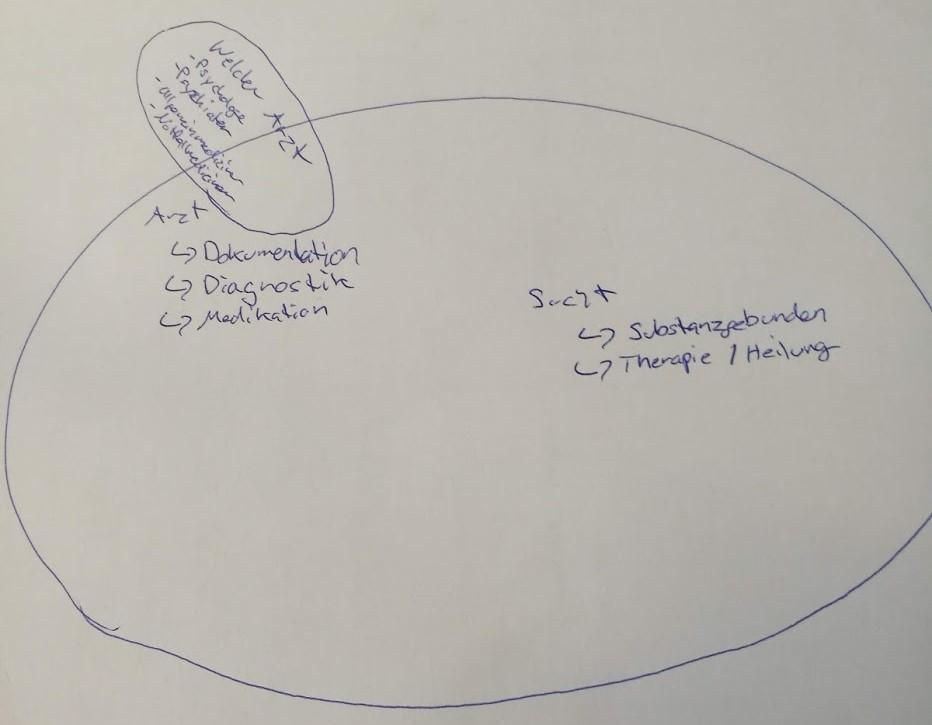 Welcher Arzt
- Psychologe
- Psychiater
- Allgemeinmediziner
- Notfallmediziner
Arzt
↳ Dokumentation
↳ Diagnostik
↳ Medikation
Sucht
↳ Substanzgebunden
↳ Therapie / Heilung